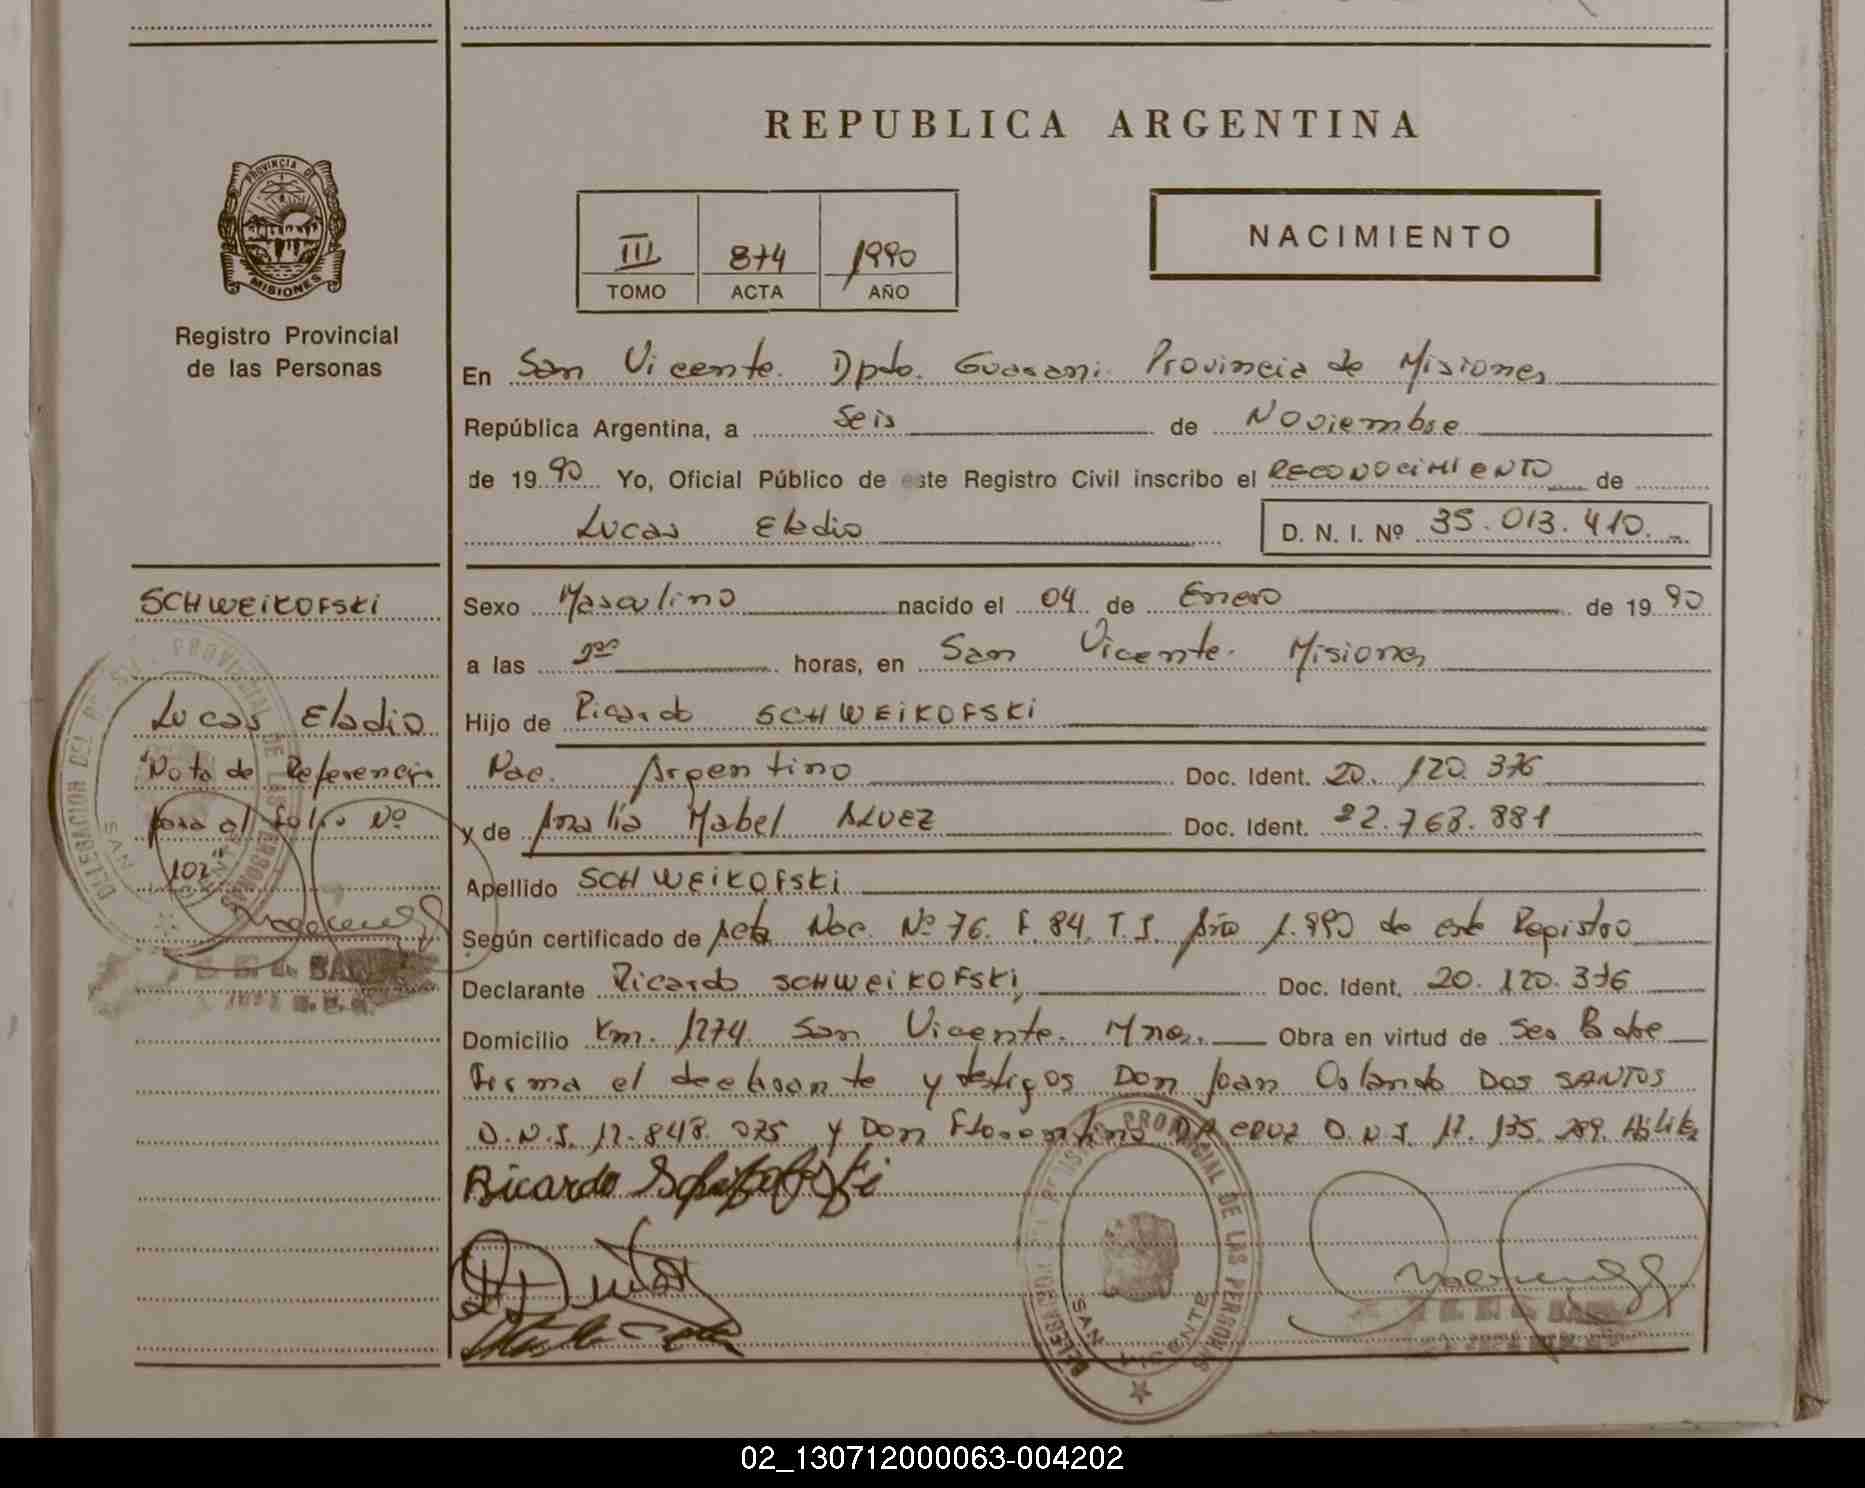 REPUBLICA ARGENTINA
PROVINCIA DE
MISIONES
Registro Provincial
de las Personas
III 874 1990
TOMO ACTA AÑO
NACIMIENTO
En San Vicente. Dpto. Guarani. Provincia de Misiones
República Argentina, a Seis de Noviembre
de 19 90 Yo, Oficial Público de este Registro Civil inscribo el RECONOCIMIENTO de
Lucas Eladio D. N. I. Nº 35.013.410.
SCHWEIKOFSKI
Lucas Eladio
"Nota de Referencia
pasa al folio Nº
102"
Sexo Masculino nacido el 04 de Enero de 19 90
a las horas, en San Vicente. Misiones
Hijo de Ricardo SCHWEIKOFSKI
Nac. Argentino Doc. Ident. 20. 120. 376
y de Analia Mabel ALVEZ Doc. Ident. 22.768.881
Apellido SCHWEIKOFSKI
Según certificado de Acta Nac. Nº 76. F. 84. T. I. Año 1.990 de este Registro
Declarante Ricardo SCHWEIKOFSKI, Doc. Ident. 20. 120. 376
Domicilio Km. 1274. San Vicente. Mnes. Obra en virtud de Ser Padre
Firma el declarante y testigos Don Juan Orlando DOS SANTOS
D.N.I. 17.848.075 y Don Florentino DA CRUZ D.N.I. 17. 135. 289.
Ricardo
DELEGACION DEL REGISTRO PROVINCIAL DE LAS PERSONAS
SAN VICENTE
02_130712000063-004202